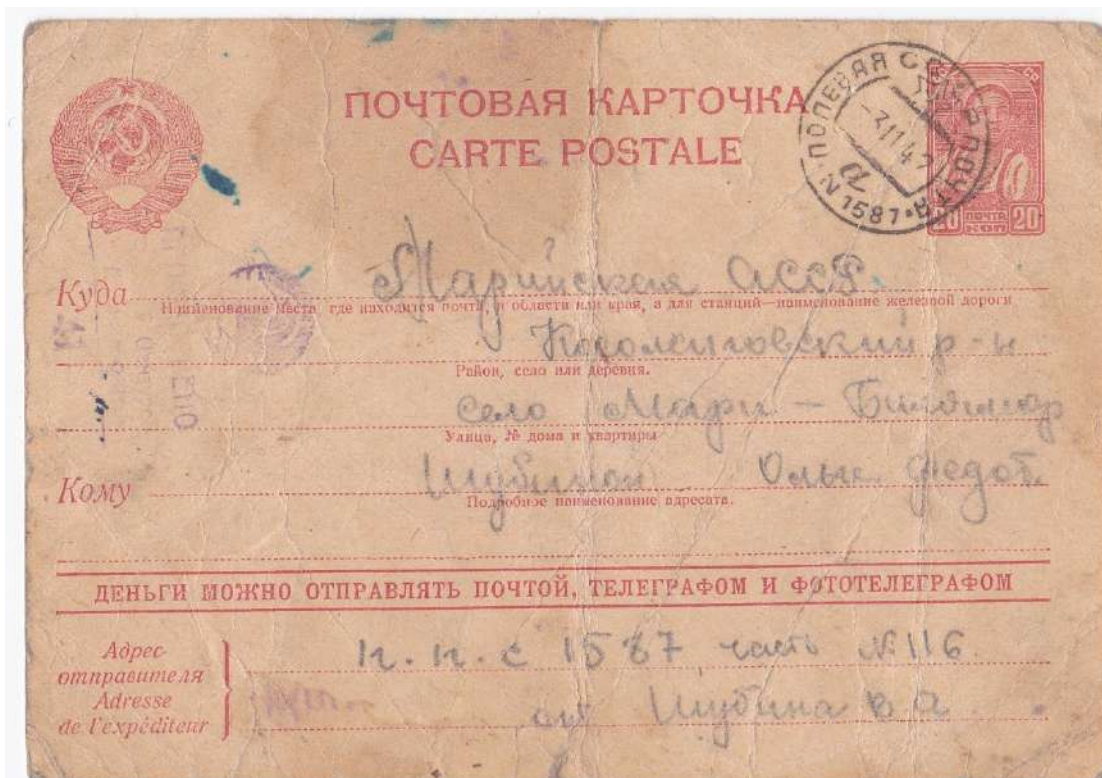 ПОЧТОВАЯ КАРТОЧКА
CARTE POSTALE
ПОЛЕВАЯ ПОЧТА
N 1587
а
20 ПОЧТА КОП 20
Куда Марийская АССР.
Наименование места, где находится почта, и области или края, а для станций—наименование железной дороги
р-н
Район, село или деревня.
село Мари - Билямор
Улица, № дома и квартиры
Кому Шубиной Ольге Федот.
Подробное наименование адресата.
ДЕНЬГИ МОЖНО ОТПРАВЛЯТЬ ПОЧТОЙ, ТЕЛЕГРАФОМ И ФОТОТЕЛЕГРАФОМ
Адрес отправителя
Adresse de l'expéditeur
п. п. с 1587 часть № 116
от Шубина В А